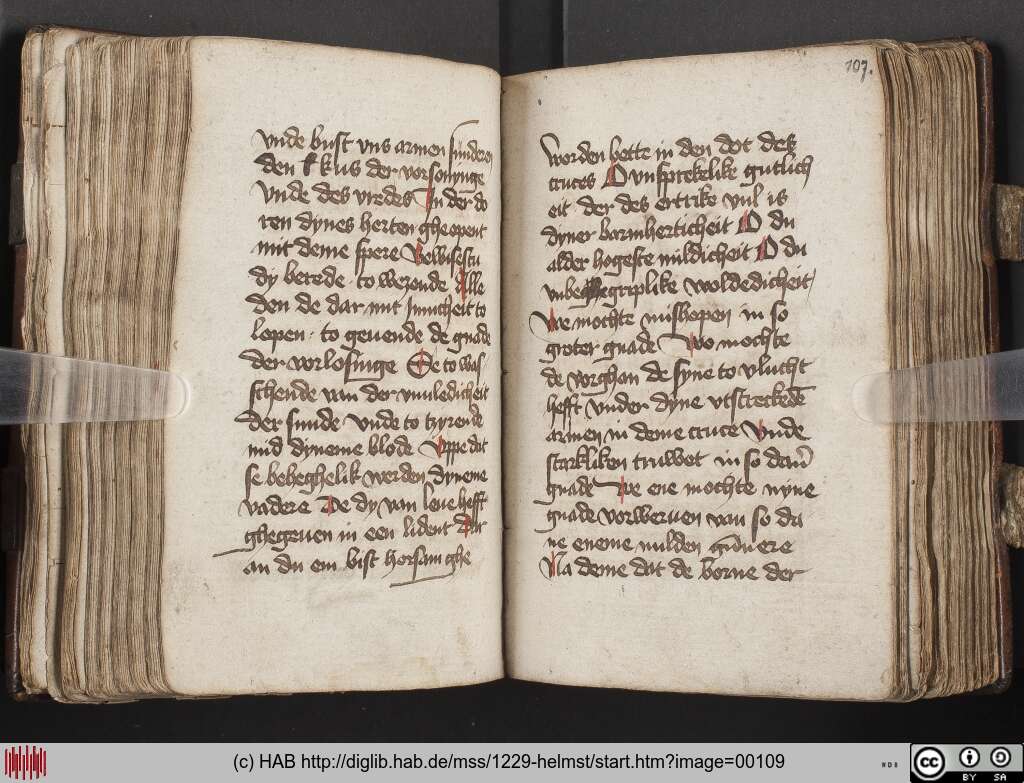 vnde bust vns armen sunderen
den kus der vorsonynge
vnde des vredes In der do
ren dynes herten gheopent
mit deme spere Bewisestu
dy berede to wezende Alle
den de dar mit Innicheit to
lopen to geuende de gnade
der vorlosinge De to was
schende van der vnuledicheit
der sunde vnde to tzyrende
mid dyneme blode Vppe dat
se beheghelik werden dyneme
vadere De dy van leue hefft
ghegeuen in een lident Dar
an du em bist horsam ghe
107.
worden bette in den dot des
cruces O vnsprekelike gutlich
eit der des ertrike vul is
dyner barmherticheit O du
alder hogeste mildicheit O du
vnbegriplike woldedicheit
We mochte mishopen in so
groter gnade Wo mochte
de vorghan de syne to vlucht
hefft vnder dyne vtstreckede
armen in deme cruce Vnde
starkliken truwet in so dan
gnade We ene mochte nyne
gnade vorweruen van so da
ne eneme milden gheuere
Na deme dat de borne der
(c) HAB http://diglib.hab.de/mss/1229-helmst/start.htm?image=00109
WDB
cc
BY SA